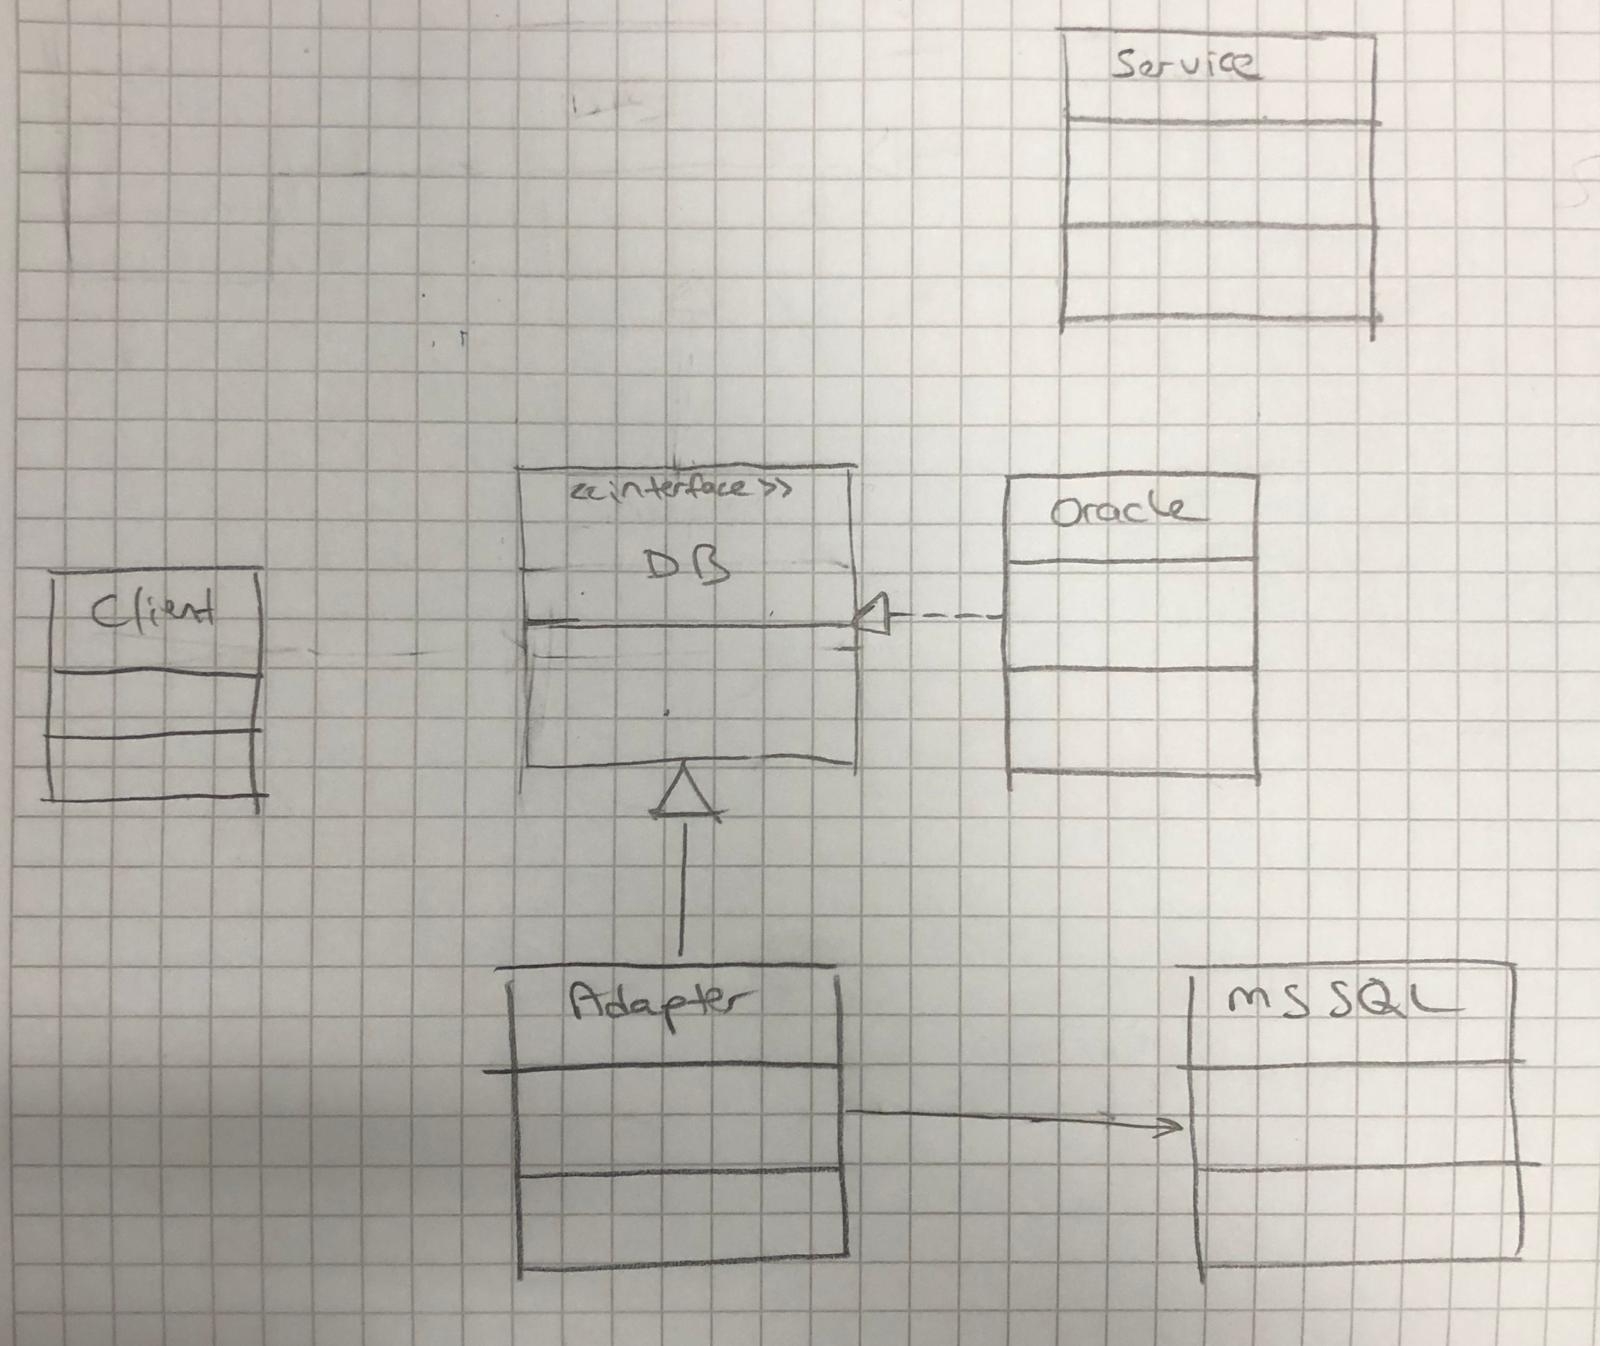 Service
<<interface>>
DB
Oracle
Client
Adapter
MS SQL